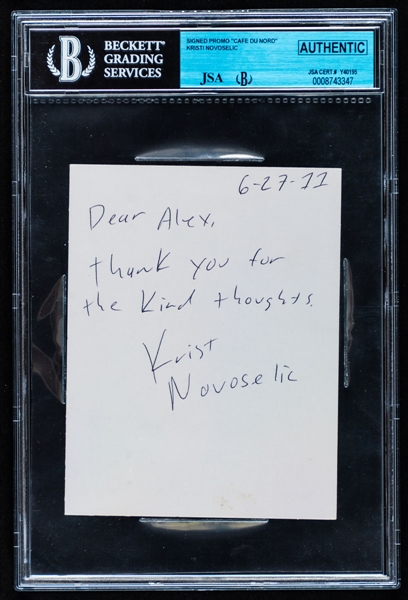 BECKETT®
GRADING
SERVICES
B
SIGNED PROMO "CAFE DU NORD"
KRISTI NOVOSELIC
JSA B
AUTHENTIC
JSA CERT.# Y40195
0008743347
6-27-11
Dear Alex,
thank you for
the kind thoughts.
Krist
Novoselic